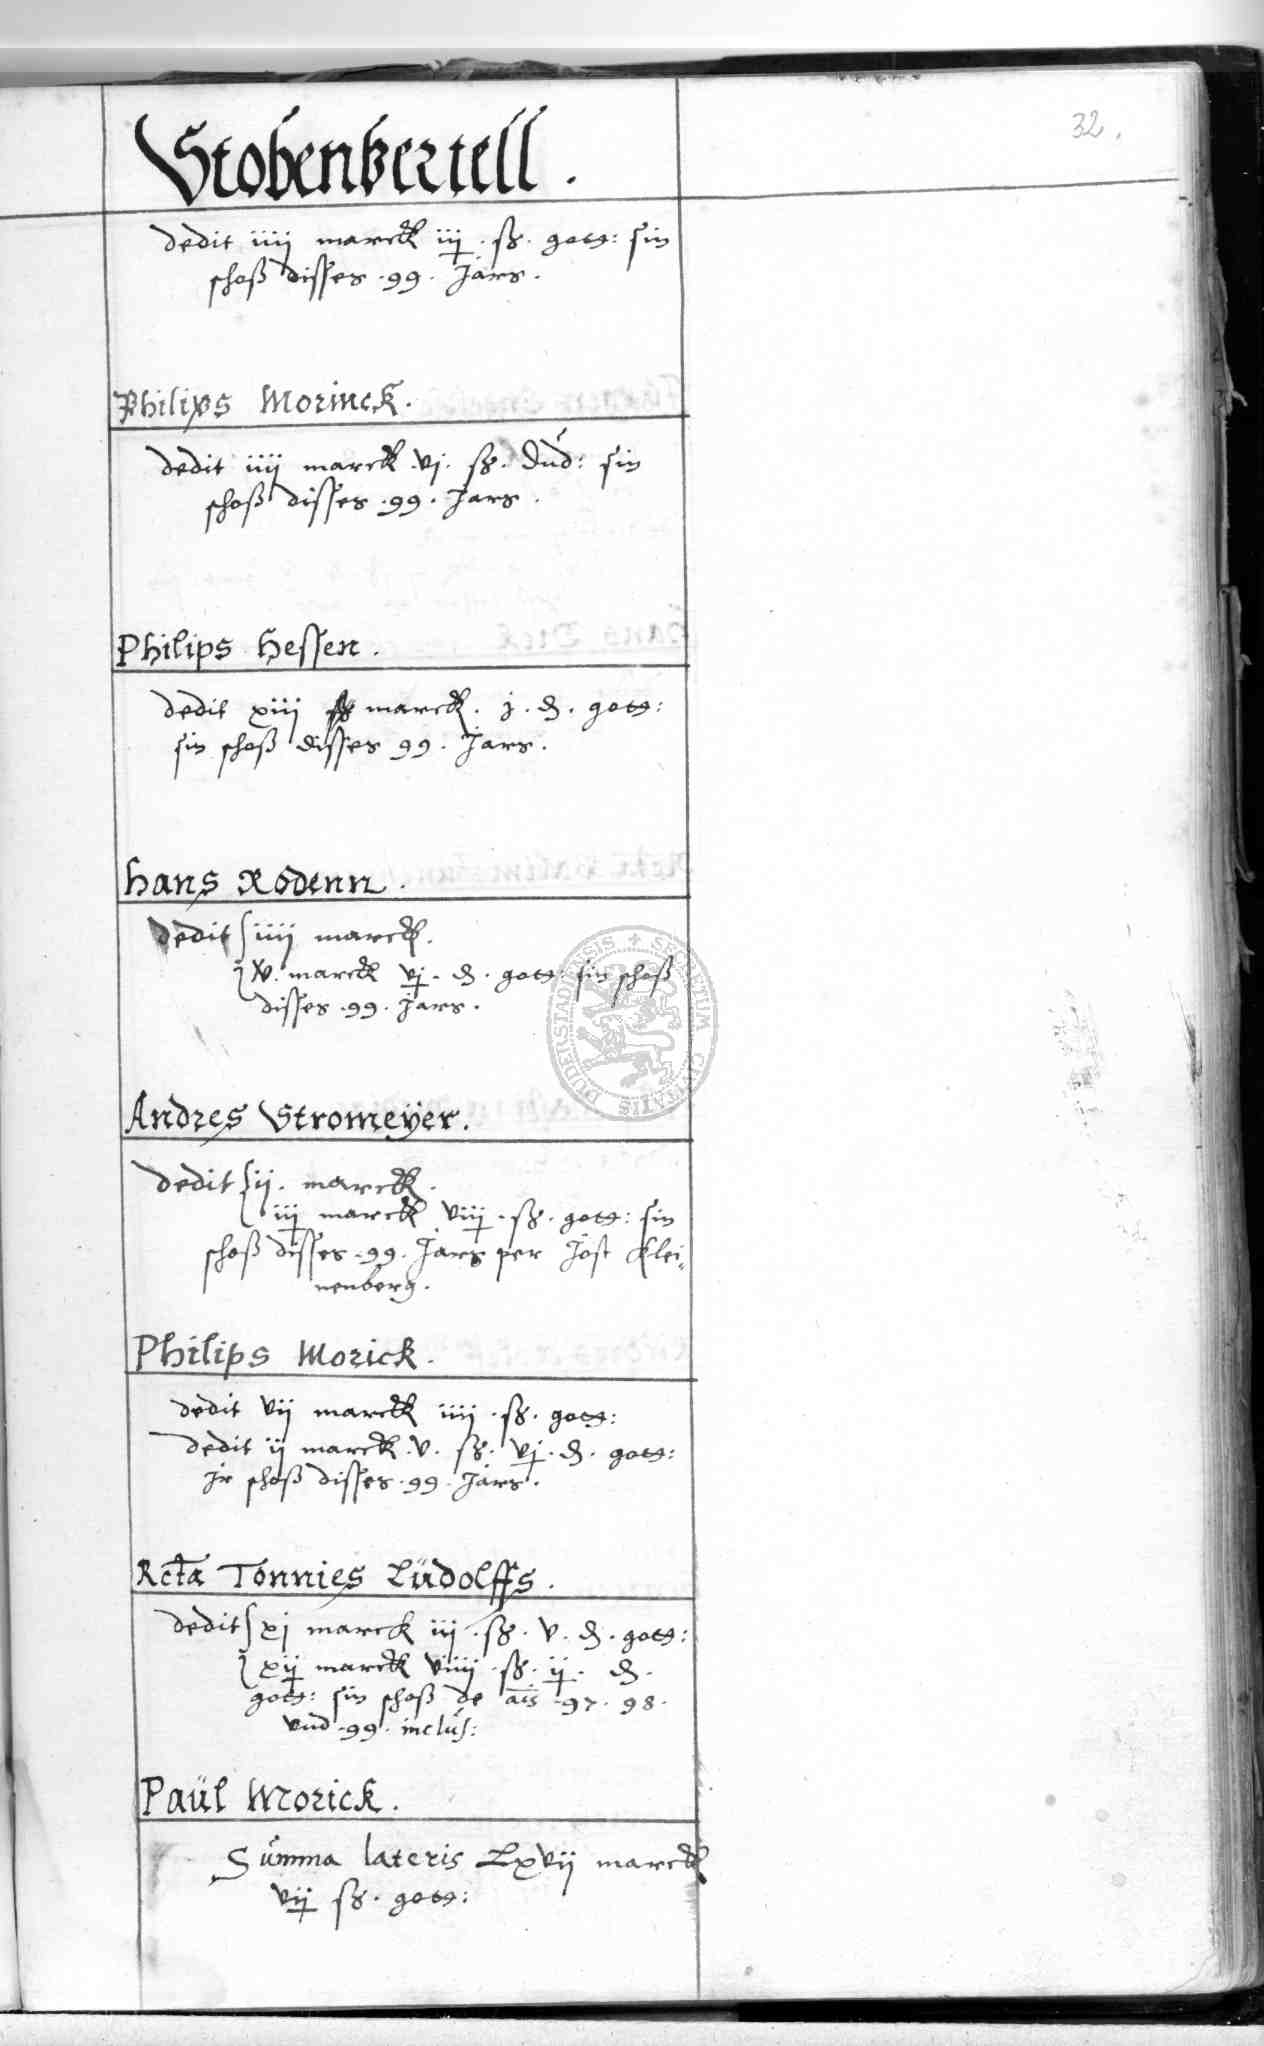 32.
Stobenbertell.
dedit iiij marck iij. ß. gott: sin
schoß disses .99. Jars.
Philips Morinck.
dedit iiij marck .vj. ß. Dud: sin
schoß disses .99. Jars.
Philips Hessen.
dedit xiij marck. j. d. gott:
sin schoß disses 99. Jars.
Hans Rodenn.
dedit iiij marck.
v. marck vj. d. gott: sin schoß
disses .99. Jars.
Andres Stromeÿer.
dedit ij. marck.
iij marck viij. ß. gott: sin
schoß disses .99. Jars per Jost Klei-
nenberg.
Philips Morick.
dedit vij marck iiij. ß. gott:
dedit ij marck .v. ß. vj. d. gott:
Jr schoß disses .99. Jars.
Rcta Tonnies Lüdolffs.
dedit xj marck iij. ß. v. d. gott:
xij marck viiij. ß. ij. d.
gott: sin schoß de ais .97. 98.
vnd .99. inclus:
Paül Morick.
Summa lateris Lxvij marck
vij ß. gott:
SECRETUM CIVITATIS DUDERSTADIENSIS